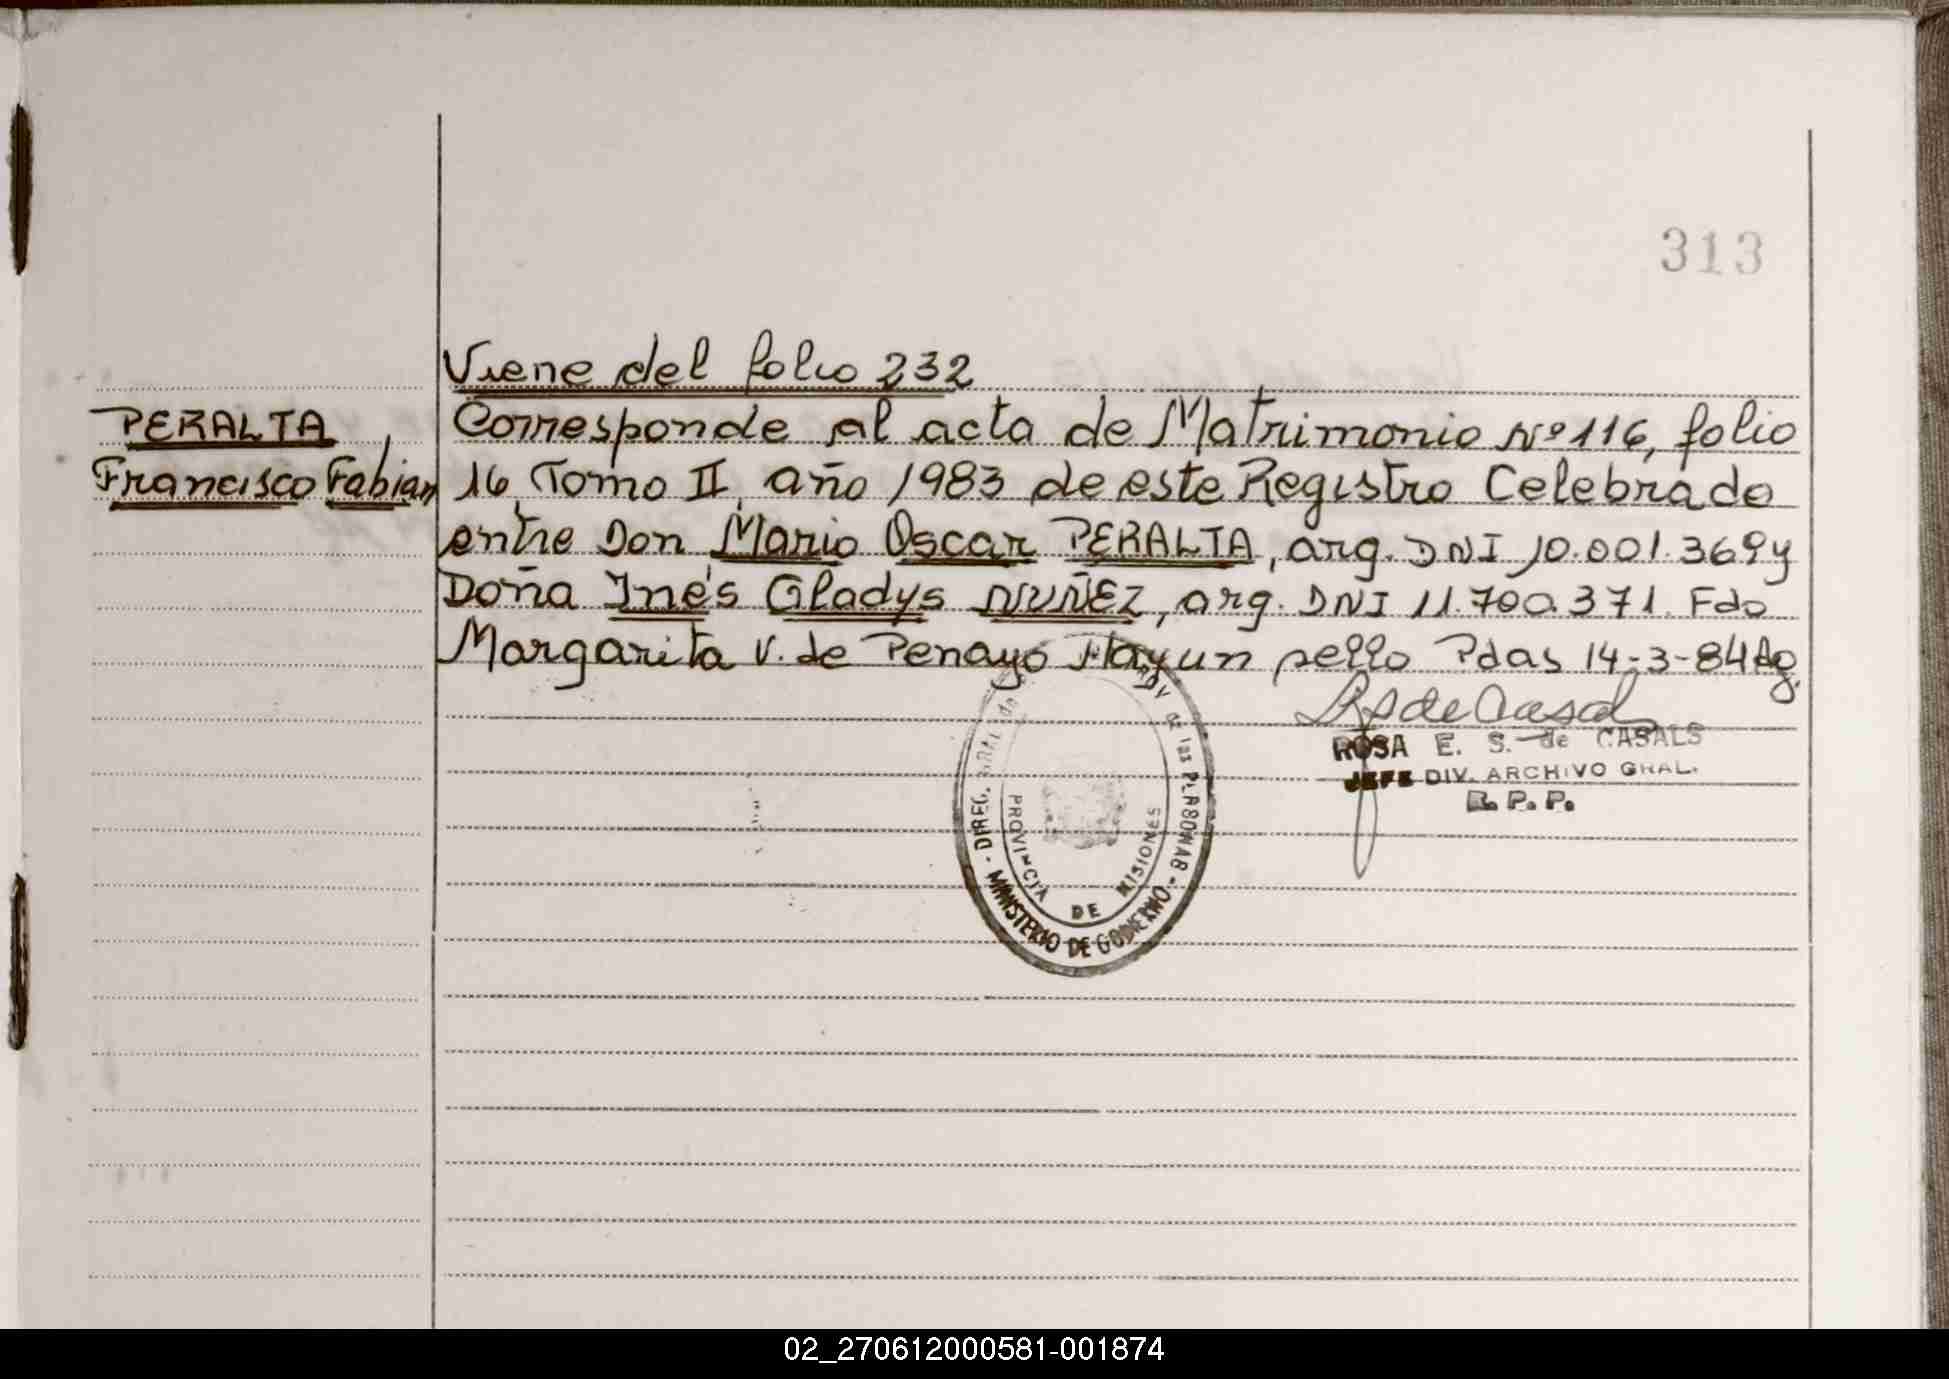 313
Viene del folio 232
PERALTA,
Francisco Fabian
Corresponde al acta de Matrimonio Nº 116, folio
16, Tomo II, año 1983 de este Registro Celebrado
entre Don Mario Oscar PERALTA, arg. DNI 10.001.369 y
Doña Inés Gladys NUÑEZ, arg. DNI 11.700.371. Fdo
Margarita V. de Penayo Hay un sello Pdas 14-3-84 Ag.
ROSA E. S. de CASALS
JEFE DIV. ARCHIVO GRAL.
R. P. P.
- DIREC. GRAL do de las PERSONAS -
MINISTERIO DE GOBIERNO
PROVINCIA DE MISIONES
02_270612000581-001874